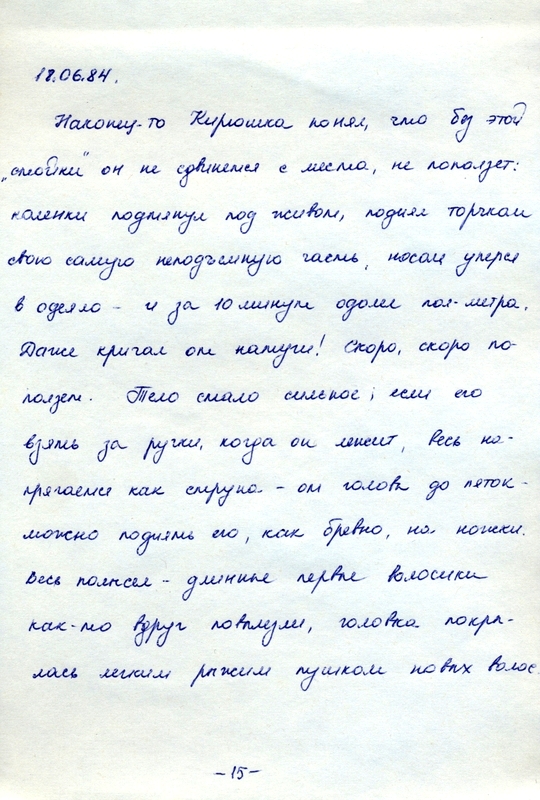 18.06.84.
Наконец-то Кирюшка понял, что без этой
„стойки" он не сдвинется с места, не поползет:
коленки подтянул под живот, поднял торчком
свою самую неподъемную часть, носом уперся
в одеяло - и за 10 минут одолел пол-метра.
Даже кричал от натуги! Скоро, скоро по-
ползет. Тело стало сильное; если его
взять за ручки, когда он лежит, весь на-
прягается как струна - от головы до пяток -
можно поднять его, как бревно, на ножки.
Весь полысел - длинные первые волосики
как-то вдруг повылезли, головка покры-
лась легким рыжим пушком новых волос
-15-